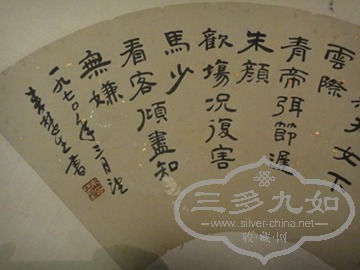 女下
雲際
青帝弭節遲
朱顏
歡塲況復害
馬少
看客傾盡知
無嫌
一九七〇年三月望
來楚生書
三多九如
www.silver-china.net
收藏网